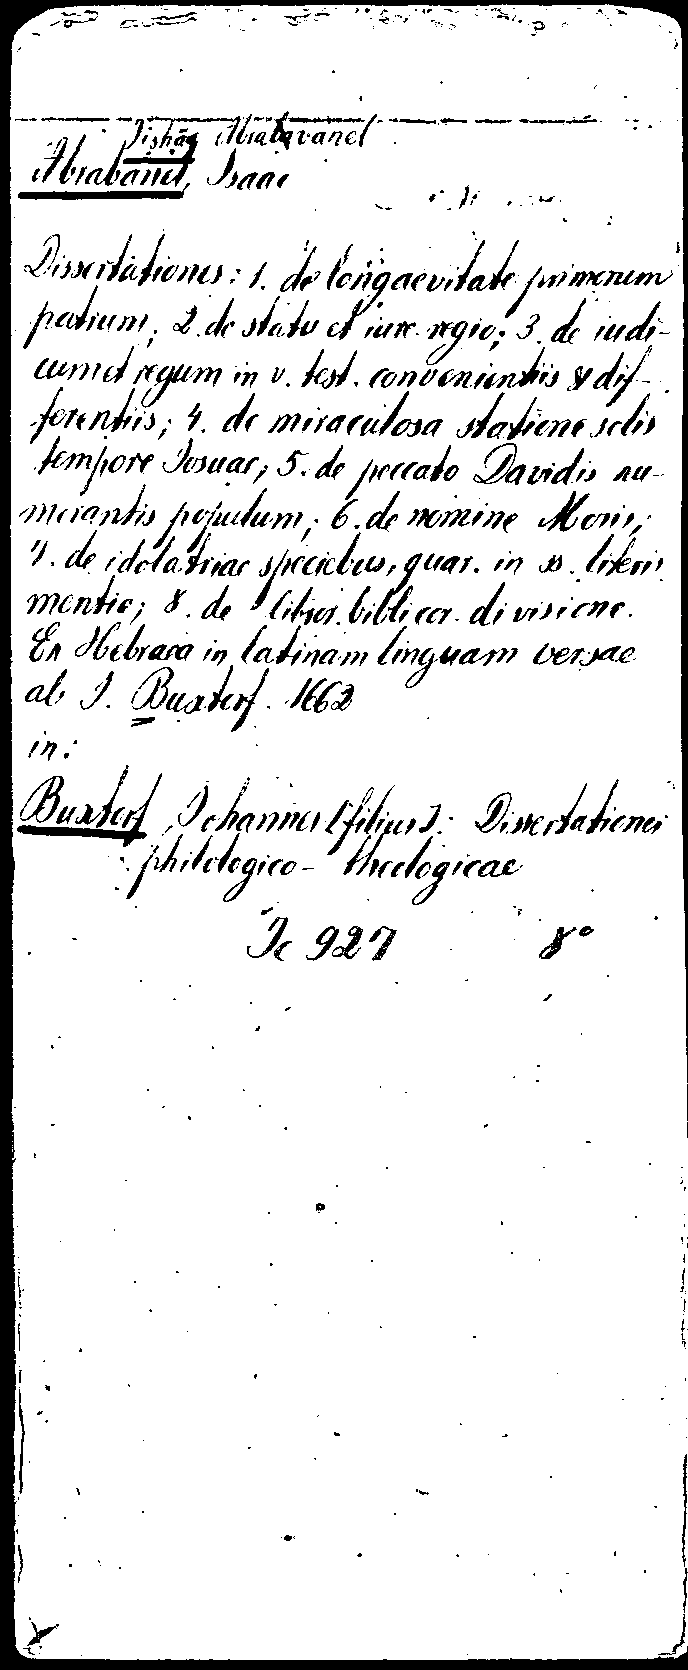 Jishāq Abrabanel
Abrabanel, Isaac
Dissertationes: 1. de longaevitate primorum
patrum; 2. de statu et iure regio; 3. de iudi-
cum et regum in v. test. convenientiis & dif-
ferentiis; 4. de miraculosa statione solis
tempore Josuae; 5. de peccato Davidis nu-
merantis populum; 6. de nomine Mosis;
7. de idolatriae speciebus, quar. in ss. literis
mentio; 8. de libror. biblicor. divisione.
Ex Hebraea in latinam linguam versae
ab J. Buxtorf. 1662
in:
Buxtorf, Johannes [filius]: Dissertationes
philologico-theologicae
Jc 927 8°